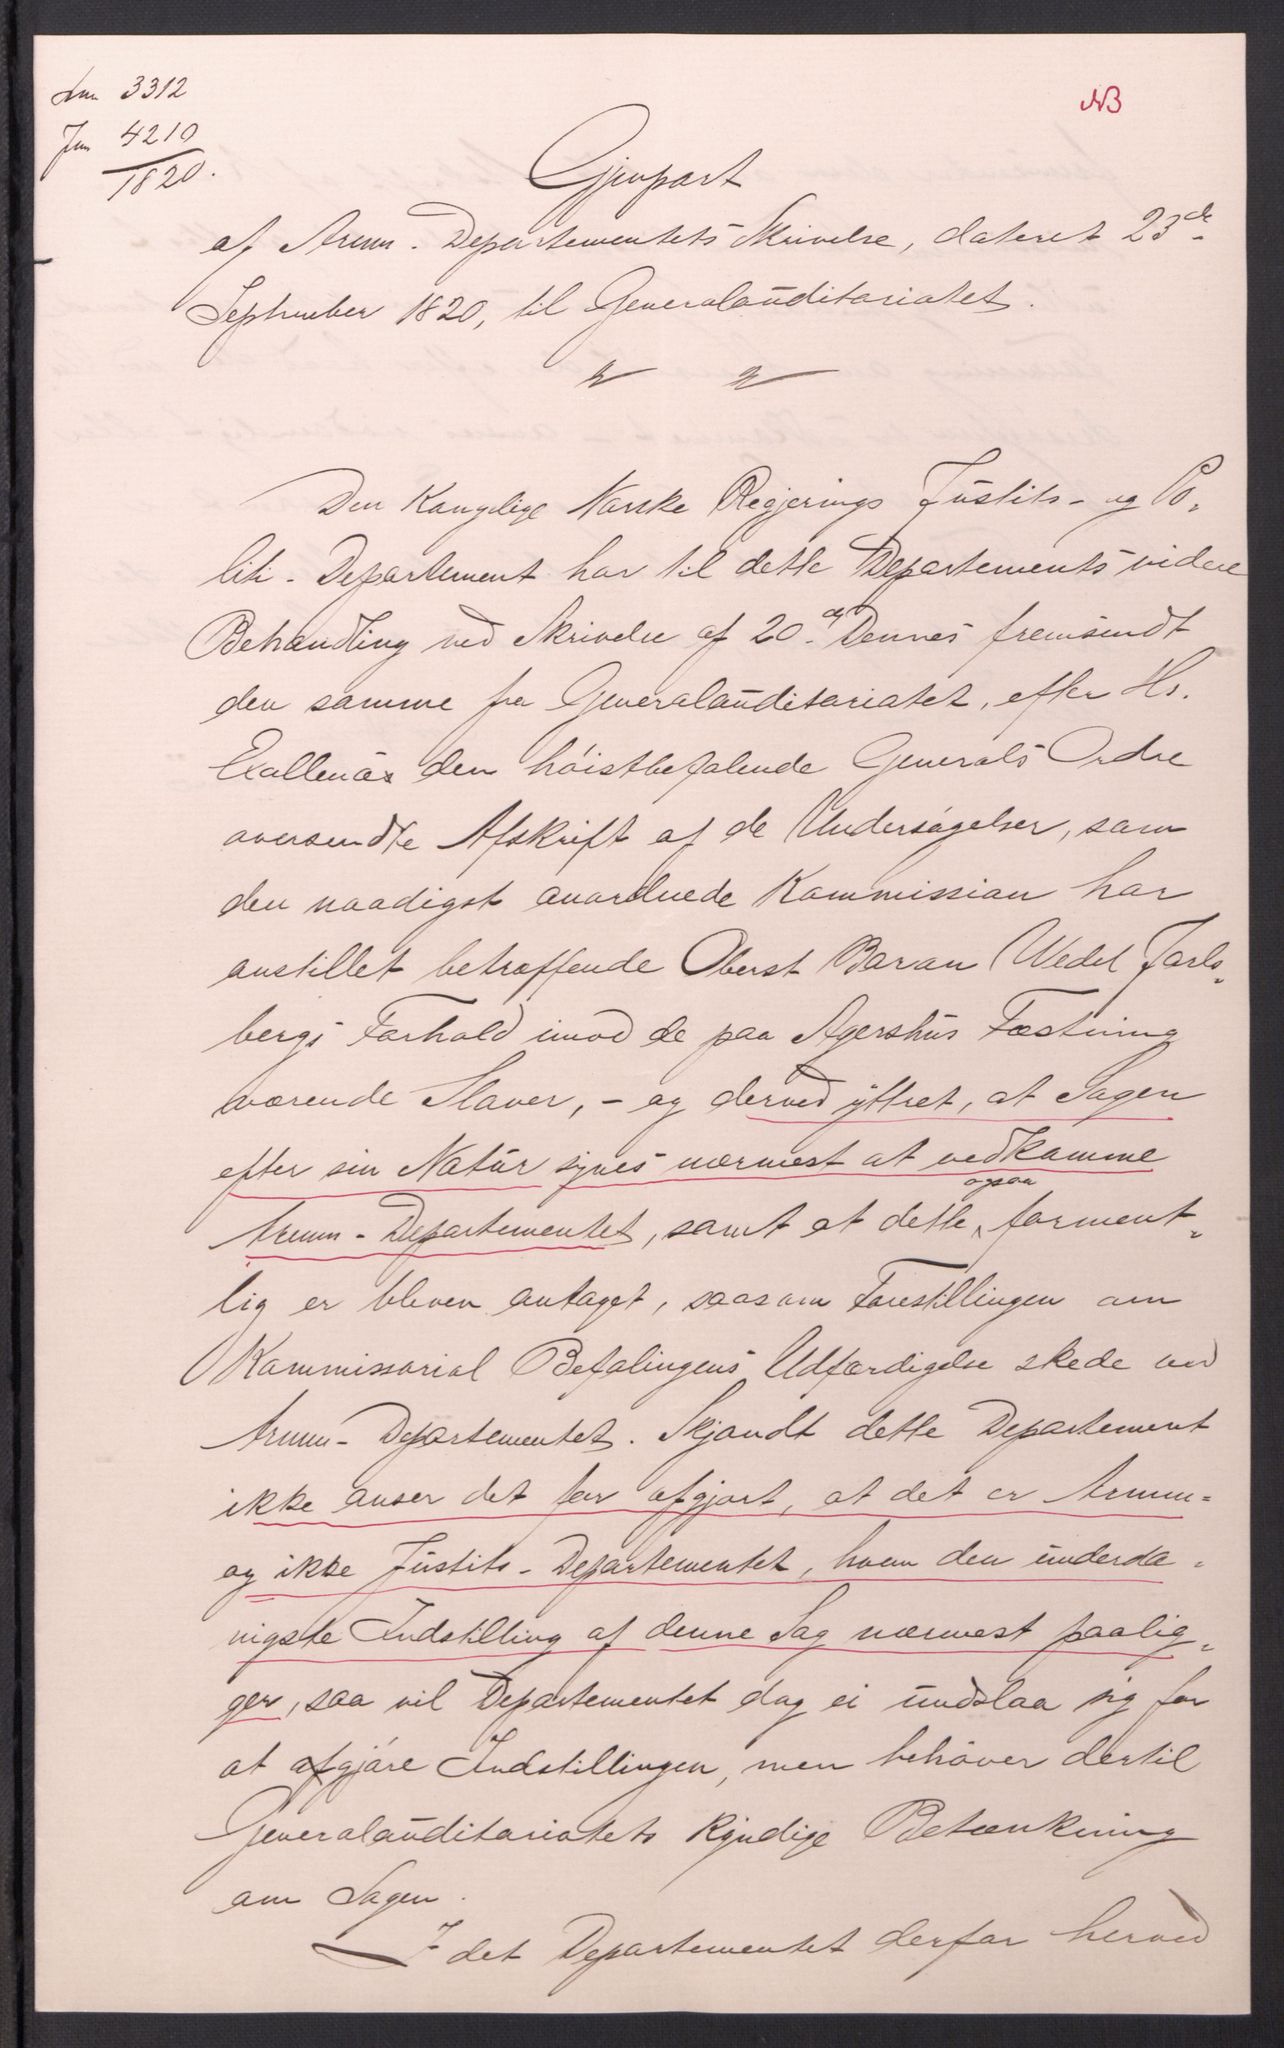 Lnn 3312
Jnn 4210
1820.
NB
Gjenpart
af Armm. Departementets Skrivelse, dateret 23de
September 1820, til Generalauditariatet.
Den Kongelige Norske Regjerings Justits- og Po-
liti-Departement har til dette Departements videre
Behandling ved Skrivelse af 20de Dennes fremsendt
den samme fra Generalauditariatet, efter Hs.
Exallence den höistbefalende Generals Ordre
oversendte Afskrift af de Undersøgelser, som
den naadigst anordnede Kommission har
anstillet betræffende Oberst Baron Wedel Jarls-
bergs Forhold imod de paa Agershus Fæstning
værende Slaver, - og derved yttret, at Sagen
efter sin Natur synes nærmest at vedkomme
Armm-Departementet, samt at dette ogsaa forment-
lig er bleven antaget, saasom Forestillingen om
Kommissorial Befalingens Udfærdigelse skede ved
Armm-Departementet. Skjøndt dette Departement
ikke anser det for afgjort, at det er Armm-
og ikke Justits-Departementet, hvem den underda-
nigste Indstilling af denne Sag nærmest paalig-
ger, saa vil Departementet dog ei undslaa sig for
at afgjöre Indstillingen, men behöver dertil
Generalauditariatets kyndige Betænkning
om Sagen.
I det Departementet derfor herved